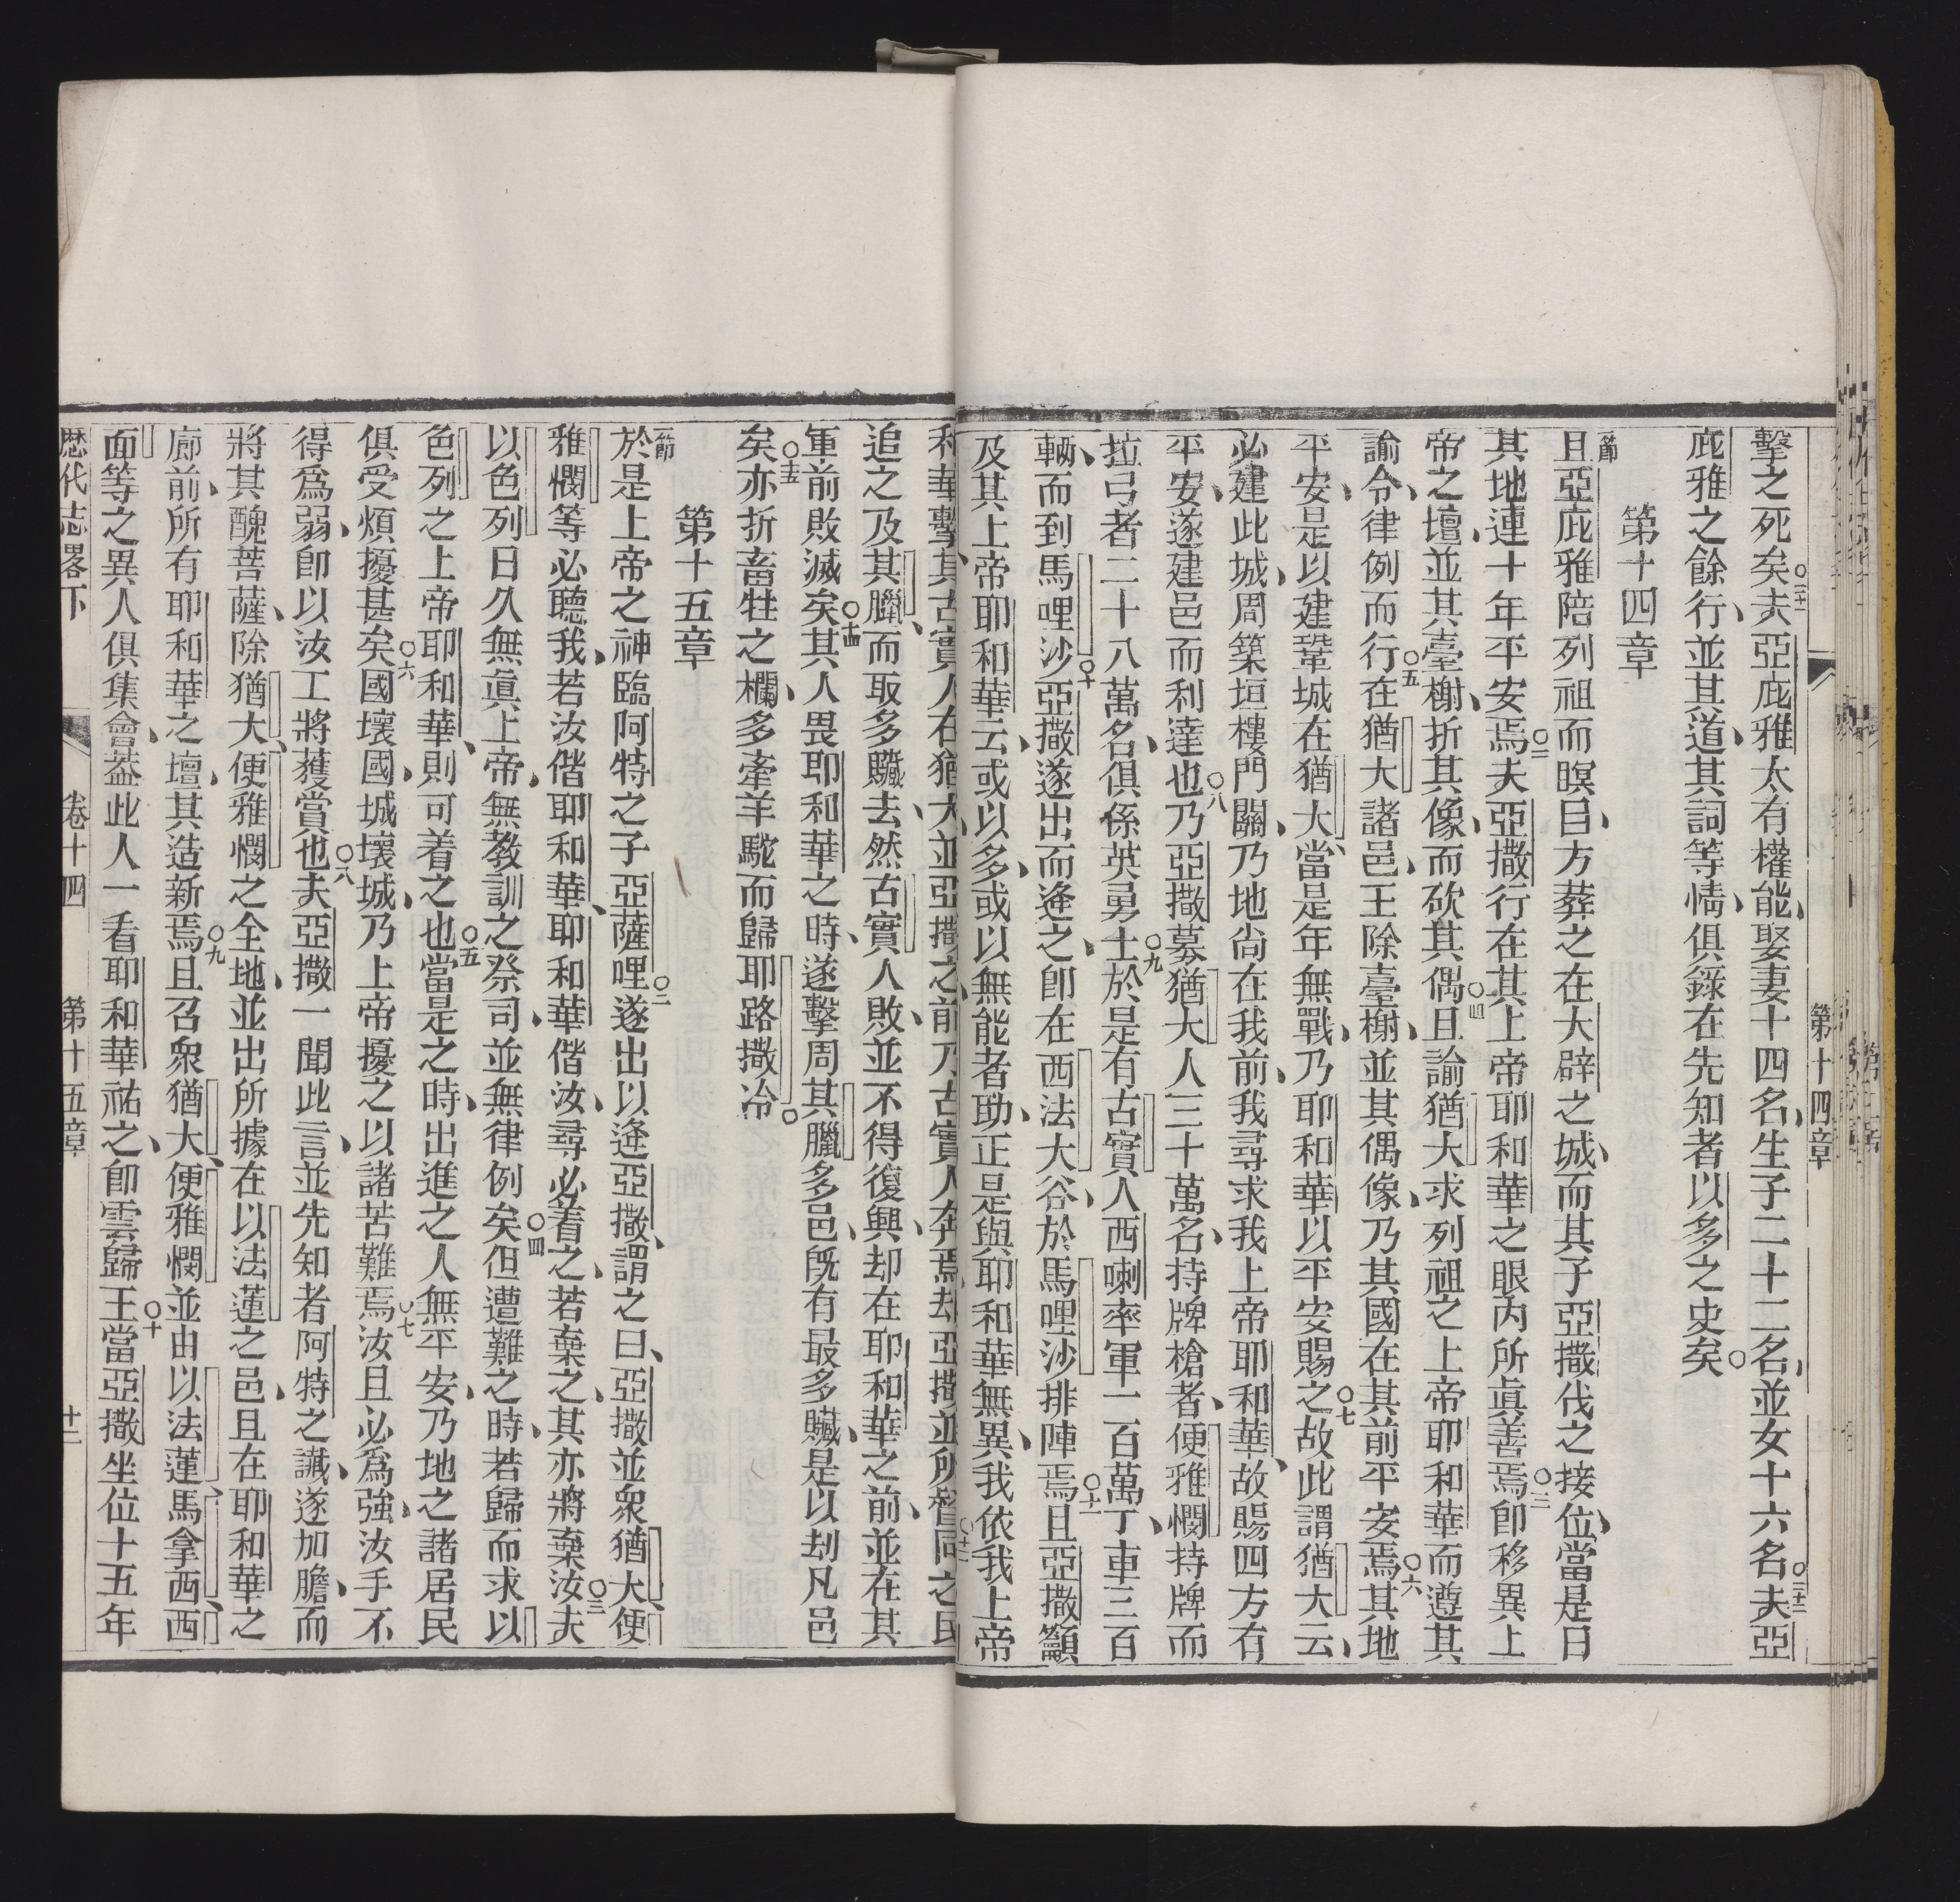 第十四章
擊之死矣○二十一夫亞庇雅太有權能、娶妻十四名、生子二十二名、並女十六名○二十二夫亞
庇雅之餘行、並其道、其詞等情、俱錄在先知者以多之史矣○
第十四章
一節且亞庇雅陪列祖而瞑目、方葬之在大辟之城、而其子亞撒伐之接位、當是日
其地連十年平安焉○二夫亞撒行在其上帝耶和華之眼內所眞善焉○三卽移異上
帝之壇、並其臺榭、折其像、而砍其偶○四且諭猶大求列祖之上帝耶和華而遵其
諭令、律例而行○五在猶大諸邑、王除臺榭、並其偶像、乃其國在其前平安焉○六其地
平安、是以建鞏城在猶大、當是年無戰、乃耶和華以平安賜之○七故此謂猶大云、
必建此城、周築垣樓門關、乃地尚在我前、我尋求我上帝耶和華、故賜四方有
平安、遂建邑而利達也○八乃亞撒募猶大人三十萬名、持牌槍者、便雅憫持牌而
拉弓者二十八萬名、俱係英勇士○九於是有古實人西喇率軍一百萬丁、車三百
輛、而到馬哩沙○十亞撒遂出而逄之、卽在西法大谷、於馬哩沙排陣焉○十一且亞撒籲
及其上帝耶和華云、或以多、或以無能者助、正是與耶和華無異、我依我上帝
和華擊其古實人在猶大、並亞撒之前、乃古實人奔焉、却亞撒並所督同之民
追之及其臘、而取多驣去、然古實人敗、並不得復興、却在耶和華之前、並在其
軍前敗滅矣○十四其人畏耶和華之時、遂擊周其臘多邑、旣有最多贜、是以刦凡邑
矣○十五亦折畜牲之欄、多牽羊駝而歸耶路撒冷○
第十五章
一節於是上帝之神臨阿特之子亞薩哩○二遂出以逄亞撒、謂之曰、亞撒並衆猶大、便
雅憫等必聽我、若汝偕耶和華、耶和華偕汝、尋必着之、若棄之、其亦將棄汝○三夫
以色列日久無眞上帝、無教訓之祭司、並無律例矣○四但遭難之時、若歸而求以
色列之上帝耶和華、則可着之也○五當是之時、出進之人無平安、乃地之諸居民
俱受煩擾甚矣○六國壞國、城壞城、乃上帝擾之以諸苦難焉○七汝且必爲強、汝手不
得爲弱、卽以汝工將蒦賞也○八夫亞撒一聞此言、並先知者阿特之讖、遂加膽、而
將其醜菩薩、除猶大、便雅憫之全地、並出所據在以法蓮之邑、且在耶和華之
廊前、所有耶和華之壇、其造新焉○九且召衆猶大、便雅憫並由以法蓮馬拿西西
面等之異人俱集會、葢此人一看耶和華祐之、卽雲歸王○十當亞撒坐位十五年
歷代志畧下　卷十四　第十五章　十二